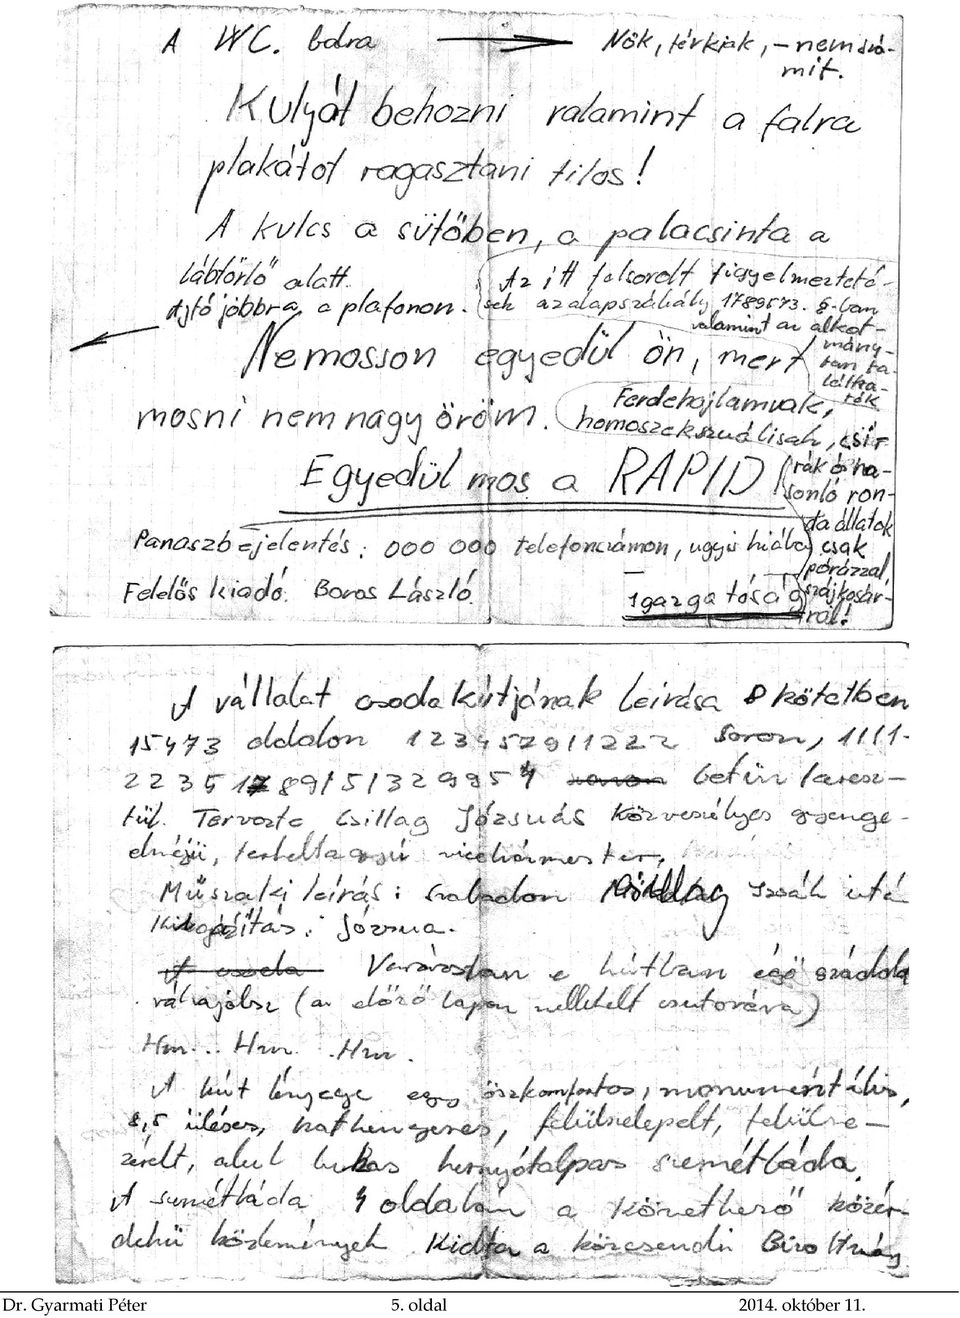 A WC. balra → Nők, férfiak, – nem számít.
Kutyát behozni valamint a falra
plakátot ragasztani tilos!
A kulcs a sütőben, a palacsinta a
lábtörlő alatt.
Ajtó jobbra, a plafonon.
Az itt felsorolt figyelmezteté-
sek az alapszabály 1789573. §-ban
valamint az alkot-
mány-
ban ta-
lálha-
tók
Nemosson egyedül ön, mert
mosni nem nagy öröm.
Egyedül mos a RAPID!
Ferdehajlamuak,
homoszekszuálisak, csir-
kák és ha-
sonló ron-
da állatok
csak
pórázzal
szájkosár-
ral!
Panaszbejelentés: 000 000 telefonszámon, ugyis hiába
Felelős kiadó: Boros László.
Igazgatóság
A vállalat csodakútjának leírása 8 kötetben
15473 oldalon 12345291122 soron, 1111-
betün keresz-
tül. Tervezte Csillag Józsuás közveszélyes gyenge-
elméjü,
Műszaki leírás: szabadon Csillag Izsák után
Kivitelezés: Józsua.
a kútban égő
ráhajolsz (az előző lapon mellékelt)
Hm... Hm. .Hm.
A kút lényege egy összkomfortos, monumentális,
8,5 üléses, hathengeres, felülszelepelt, felülve-
zérelt, alul lukas hernyótalpas szemétláda.
A szemétláda 4 oldalán a következő közér-
dekü közlemények. Kiadta a közcsendi Bizottmány
Dr. Gyarmati Péter 5. oldal 2014. október 11.